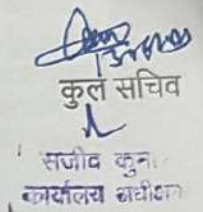 कुल सचिव
सजीव कुमा
कार्यालय अधीक्षक